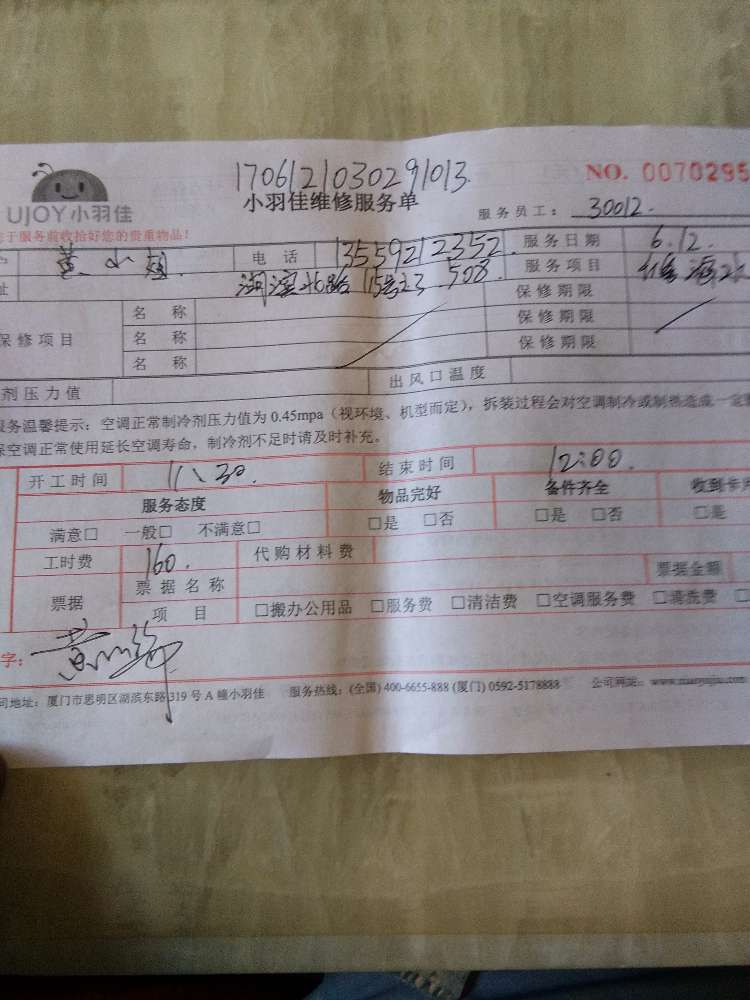 1706121030291013
NO. 0070295
UJOY小羽佳
小羽佳维修服务单
服务员工: 30012.
于服务前收拾好您的贵重物品!
黄小 电 话 13559212352 服务日期 6.12.
址 湖滨北路115号23 508 服务项目 维
保修项目 名 称 保修期限
名 称 保修期限
名 称 保修期限
剂压力值 出风口温度
服务温馨提示: 空调正常制冷剂压力值为 0.45mpa (视环境、机型而定), 拆装过程会对空调制冷或制热造成一定
保空调正常使用延长空调寿命, 制冷剂不足时请及时补充。
开工时间 11:30. 结束时间 12:00.
服务态度 物品完好 备件齐全 收到卡
满意□ 一般□ 不满意□ □是 □否 □是 □否 □是
工时费 160. 代购材料费
票据 票据名称 票据金额
项 目 □搬办公用品 □服务费 □清洁费 □空调服务费 □清洗费
字: 黄小
司地址: 厦门市思明区湖滨东路 319 号 A 幢小羽佳 服务热线: (全国) 400-6655-888 (厦门) 0592-5178888 公司网址: